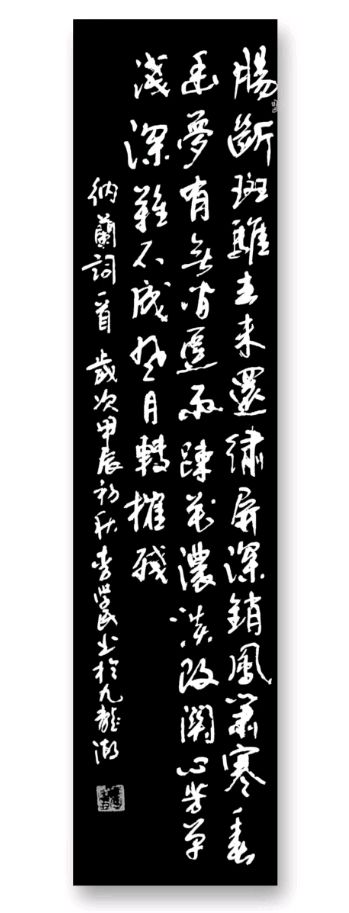 腸斷斑騅去未還繡屏深鎖鳳簫寒一春
幽夢有無間逗雨踈花濃淡改關心芳草
淺深難不成風月轉摧殘
納蘭詞一首 歲次甲辰初秋李學民書於九龍湖